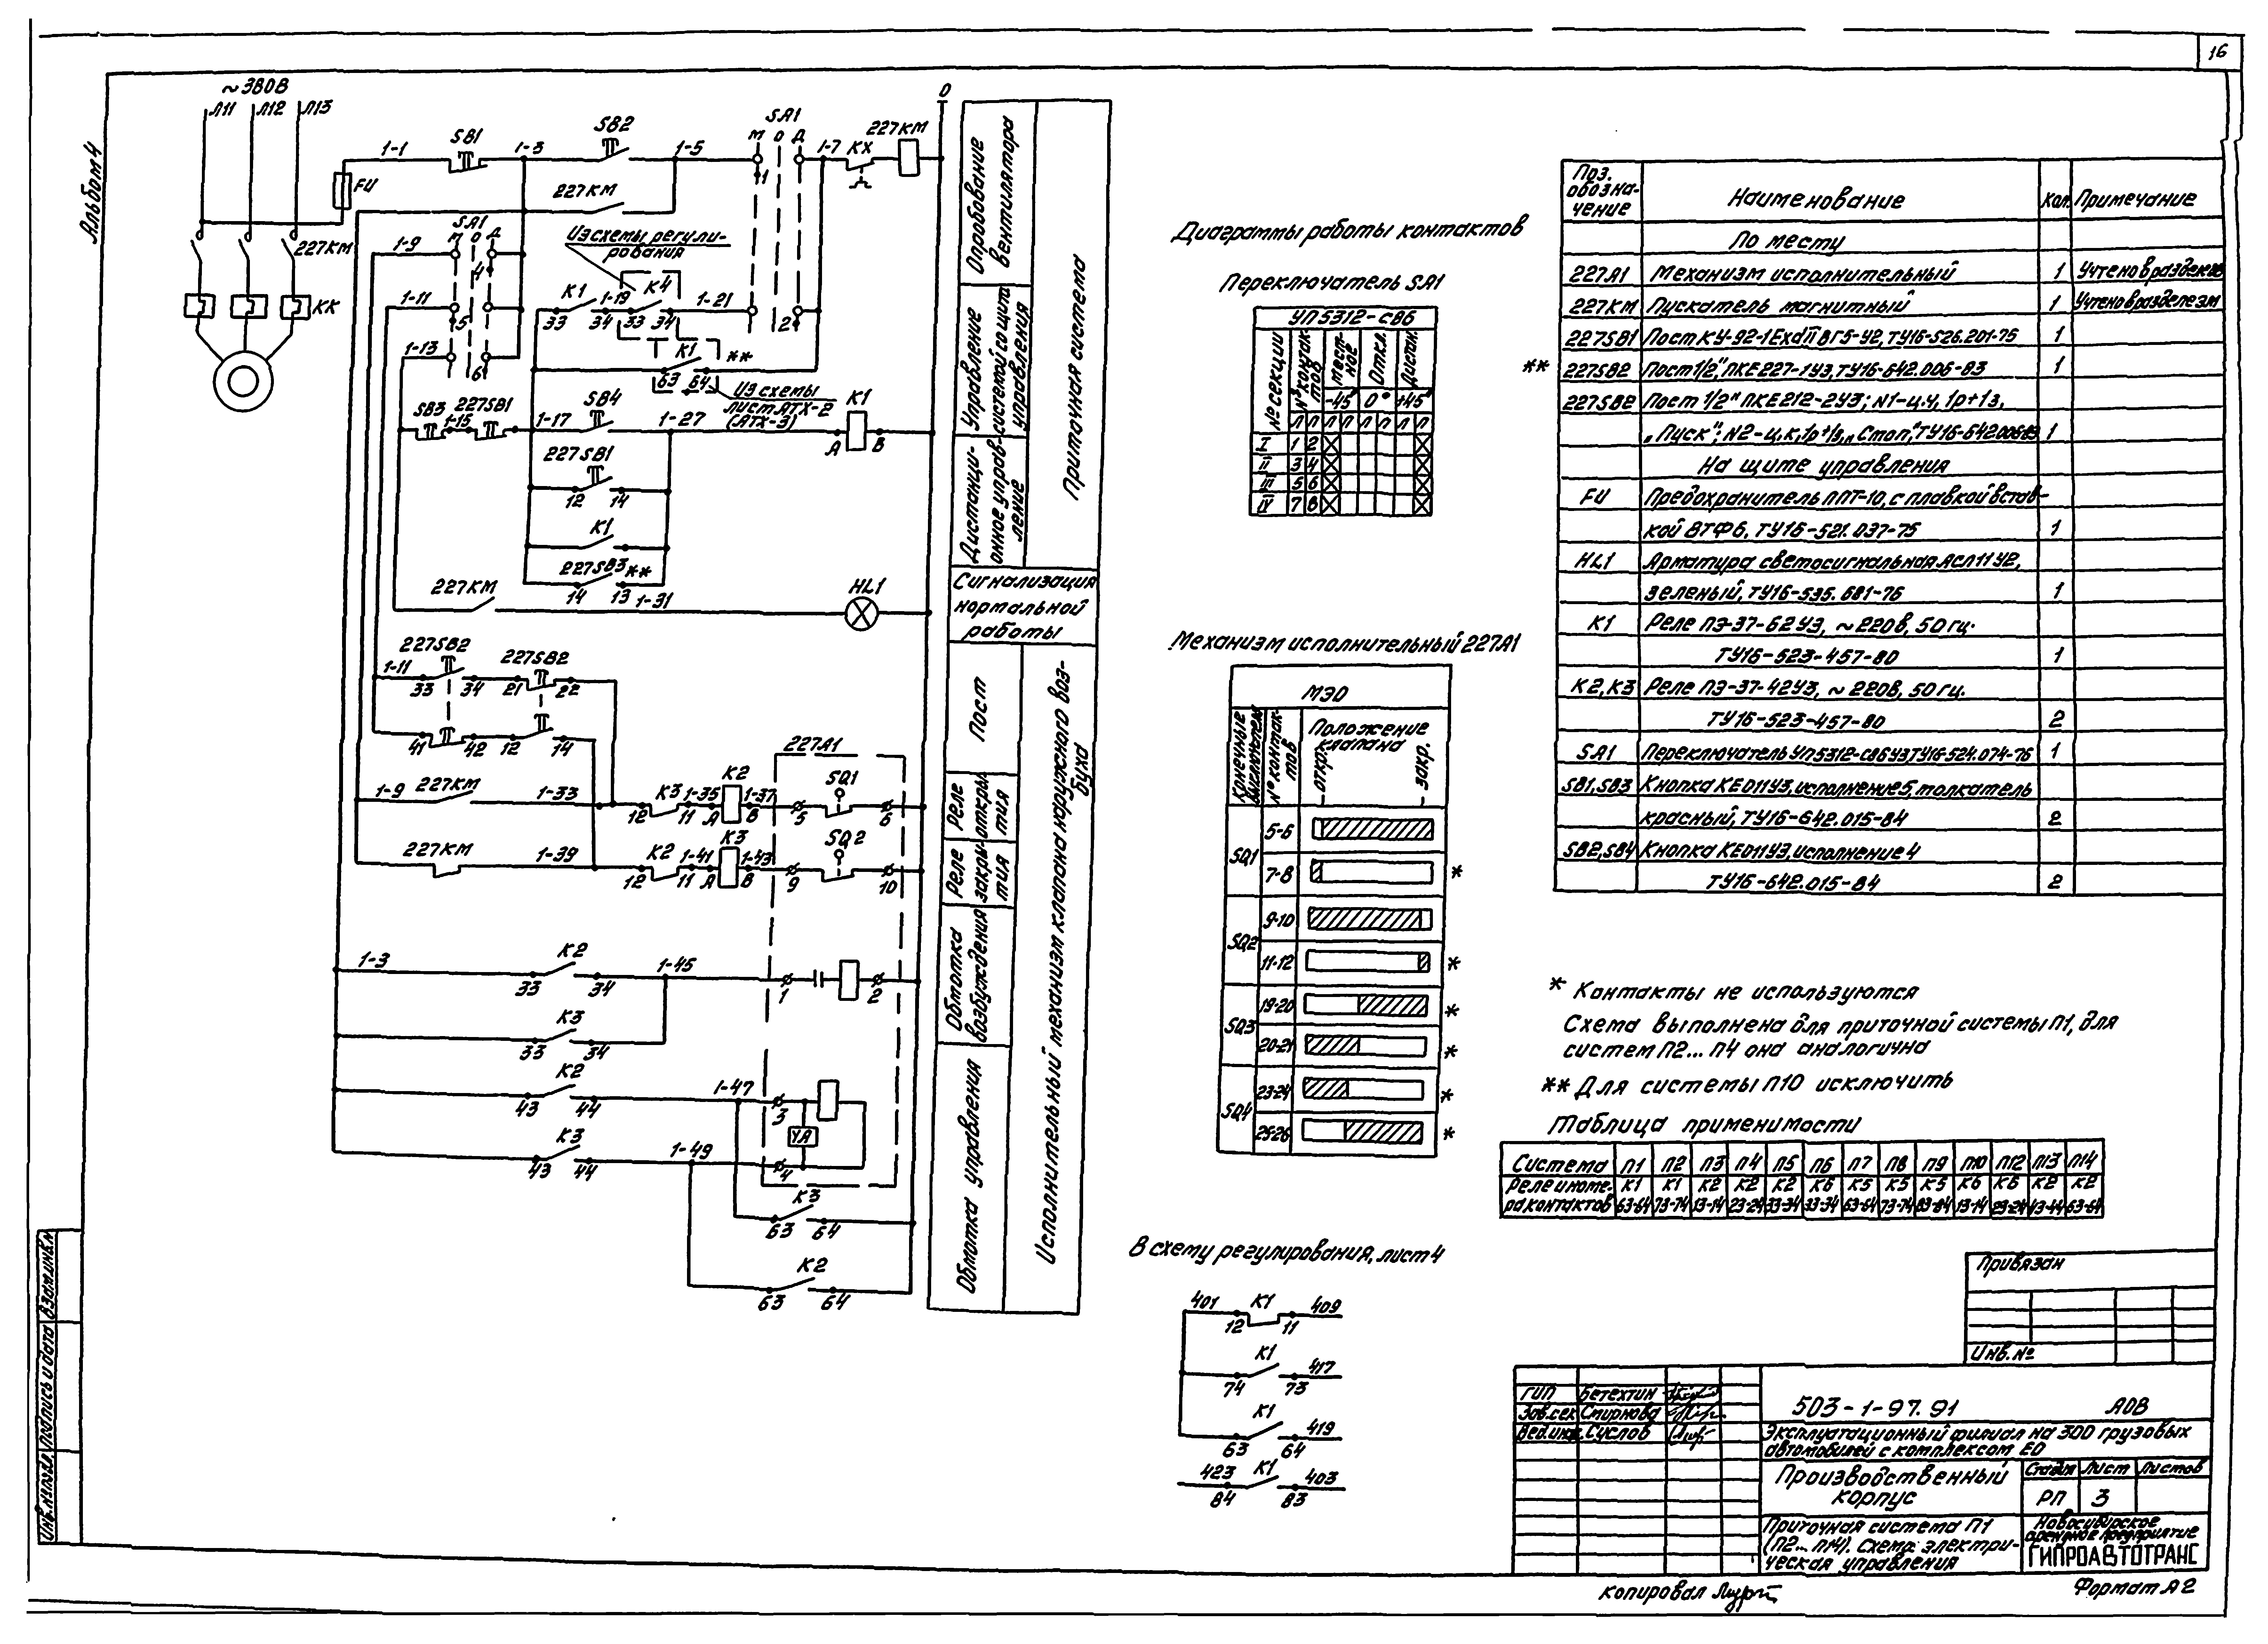 16
Альбом 4
~380В
Л11 Л12 Л13
FU
227КМ
КК
1-1 SB1 1-3 SB2 1-5 SA1 1-7 КХ 227КМ 0
М О Д
1
227КМ
SA1
М О Д
1-9
4
1-11
5
1-13
6
Из схемы регули-
рования
К1 1-19 К4 1-21
33 34 33 34
2
К1 **
63 64
Из схемы
лист АТХ-2
(АТХ-3)
SB3 1-15 227SB1 1-17 SB4 1-27 К1
А В
227SB1
12 14
К1
227SB3 **
14 13
227КМ 1-31 HL1
227SB2 227SB2
1-11
33 34 21 22
41 42 12 14
227А1
1-9 227КМ 1-33 К3 1-35 К2 1-37 SQ1
12 11 А В 5 6
227КМ 1-39 К2 1-41 К3 1-43 SQ2
12 11 А В 9 10
1-3 К2 1-45
33 34 1 2
К3
33 34
К2 1-47
43 44 3
YA
К3 1-49
43 44 4
К3
63 64
К2
63 64
Опробование
вентилятора
Управление
системой со щита
управления
Дистанци-
онное управ-
ление
Приточная система
Сигнализация
нормальной
работы
Пост
Реле
откры-
тия
Реле
закры-
тия
Обмотка
возбуждения
Обмотка управления
Исполнительный механизм клапана наружного воз-
духа
Диаграммы работы контактов
Переключатель SA1
УП5312-С86
№ секции
№ контак-
тов
Мест-
ное
Откл.
Дистан.
-45° 0° +45°
Л П Л П Л П Л П
I 1 2
II 3 4
III 5 6
IV 7 8
Механизм исполнительный 227А1
МЭО
Конечные
выключатели
№ контак-
тов
Положение
клапана
откр.
закр.
SQ1
5-6
7-8 *
SQ2
9-10
11-12 *
SQ3
19-20 *
20-21 *
SQ4
23-24 *
25-26 *
В схему регулирования, лист 4
401 К1 409
12 11
К1 417
74 73
К1 419
63 64
423 К1 403
84 83
Поз.
обозна-
чение
Наименование Кол. Примечание
По месту
227А1 Механизм исполнительный 1 Учтено в разделе
227КМ Пускатель магнитный 1 Учтено в разделе ЭМ
227SB1 Пост КУ-92-1ЕхdIIВГ5-У2, ТУ16-526.201-75 1
** 227SB2 Пост 1/2", ПКЕ 227-1У3, ТУ16-642.006-83 1
227SB2 Пост 1/2" ПКЕ 212-2У3; N1-ц.ч, 1р+1з,
„Пуск"; N2-ц.к, 1р+1з, „Стоп", ТУ16-642.006-83 1
На щите управления
FU Предохранитель ППТ-10, с плавкой встав-
кой ВТФ6, ТУ16-521.037-75 1
HL1 Арматура светосигнальная АСЛ11У2,
зеленый, ТУ16-535.681-76 1
К1 Реле ПЭ-37-62У3, ~220В, 50гц.
ТУ16-523-457-80 1
К2,К3 Реле ПЭ-37-42У3, ~220В, 50гц.
ТУ16-523-457-80 2
SA1 Переключатель УП5312-С86У3 ТУ16-524.074-76 1
SB1,SB3 Кнопка КЕ011У3, исполнение 5, толкатель
красный, ТУ16-642.015-84 2
SB2,SB4 Кнопка КЕ011У3, исполнение 4
ТУ16-642.015-84 2
* Контакты не используются
Схема выполнена для приточной системы П1, для
систем П2... П4 она аналогична
** Для системы П10 исключить
Таблица применимости
Система П1 П2 П3 П4 П5 П6 П7 П8 П9 П10 П12 П13 П14
Реле и номе- К1 К1 К2 К2 К2 К6 К5 К5 К5 К6 К6 К2 К2
ра контактов 63-64 73-74 13-14 23-24 33-34 33-34 63-64 73-74 83-84 13-14 23-24 43-44 63-64
Привязан
Инв. №
ГИП Бетехтин
Зав.сек Смирнова
Вед.инж. Суслов
503-1-97.91 АОВ
Эксплуатационный филиал на 300 грузовых
автомобилей с комплексом ЕО
Производственный
корпус
Стадия Лист Листов
РП 3
Приточная система П1
(П2... П14). Схема электри-
ческая управления
Новосибирское
арендное предприятие
ГИПРОАВТОТРАНС
Копировал
Формат А2
Взам.инв.№
Подпись и дата
Инв.№ подл.